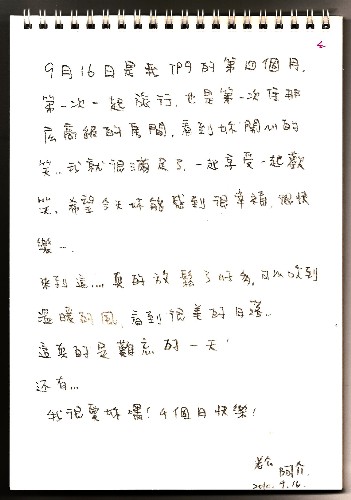 9月16日是我TP9的第四個月.
第一次一起旅行,也是第一次住那
么高級的房間,看到妳開心的
笑..我就很滿足了,一起享受一起歡
笑,希望今天妳能感到很幸福,很快
樂….
來到這….真的放鬆了好多,可以吹到
溫暖的風,看到很美的日落..
這真的是難忘的一天!
还有…
我很愛妳喔!4個月快樂!
阿介.
2010. 9.16.